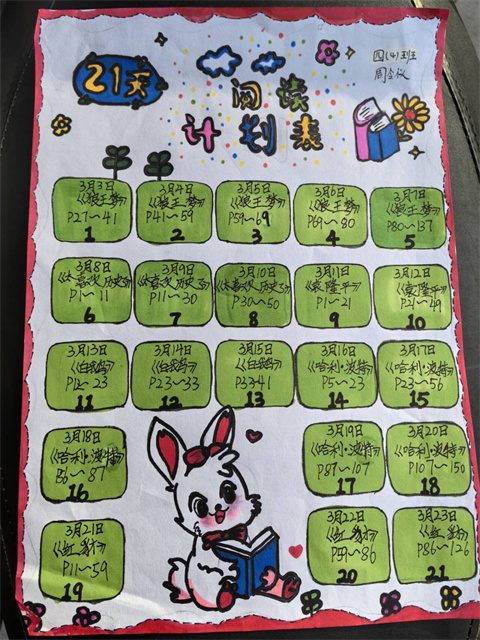 21天
阅读
计划表
四(4)班
3月3日
《狼王梦》
P27～41
1
3月4日
《狼王梦》
P41～59
2
3月5日
《狼王梦》
P59～69
3
3月6日
《狼王梦》
P69～80
4
3月7日
《狼王梦》
P80～137
5
3月8日
《太喜欢历史了》
P1～11
6
3月9日
《太喜欢历史了》
P11～30
7
3月10日
《太喜欢历史了》
P30～50
8
3月11日
《袁隆平》
P1～21
9
3月12日
《袁隆平》
P21～49
10
3月13日
P12～23
11
3月14日
P23～33
12
3月15日
P33～41
13
3月16日
《哈利·波特》
P5～23
14
3月17日
《哈利·波特》
P23～56
15
3月18日
《哈利·波特》
P56～87
16
3月19日
《哈利·波特》
P87～107
17
3月20日
《哈利·波特》
P107～150
18
3月21日
《红豺》
P11～59
19
3月22日
《红豺》
P59～86
20
3月23日
《红豺》
P86～126
21